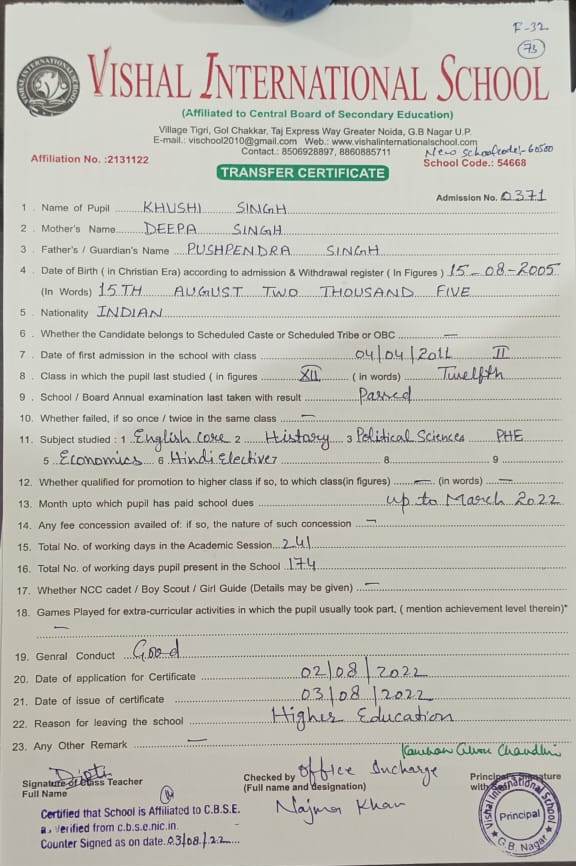 F-32
73
VISHAL INTERNATIONAL SCHOOL
(Affiliated to Central Board of Secondary Education)
Village Tigri, Gol Chakkar, Taj Express Way Greater Noida, G.B Nagar U.P.
E-mail.: vischool2010@gmail.com Web.: www.vishalinternationalschool.com
Contact.: 8506928897, 8860885711
New School code:- 60500
Affiliation No. :2131122
School Code.: 54668
TRANSFER CERTIFICATE
Admission No. 0371
1 . Name of Pupil KHUSHI SINGH
2 . Mother's Name DEEPA SINGH
3 . Father's / Guardian's Name PUSHPENDRA SINGH
4 . Date of Birth ( in Christian Era) according to admission & Withdrawal register ( In Figures ) 15-08-2005
(In Words) 15TH AUGUST TWO THOUSAND FIVE
5 . Nationality INDIAN
6 . Whether the Candidate belongs to Scheduled Caste or Scheduled Tribe or OBC —
7 . Date of first admission in the school with class 04/04/2011 II
8 . Class in which the pupil last studied ( in figures XII ( in words) Twelfth
9 . School / Board Annual examination last taken with result Passed
10. Whether failed, if so once / twice in the same class —
11. Subject studied : 1 English core 2 History 3 Political Sciences PHE
5 Economics 6 Hindi Elective 7 8 9
12. Whether qualified for promotion to higher class if so, to which class(in figures) — (in words) —
13. Month upto which pupil has paid school dues up to March 2022
14. Any fee concession availed of: if so, the nature of such concession —
15. Total No. of working days in the Academic Session 241
16. Total No. of working days pupil present in the School 174
17. Whether NCC cadet / Boy Scout / Girl Guide (Details may be given) —
18. Games Played for extra-curricular activities in which the pupil usually took part, ( mention achievement level therein)*
—
19. Genral Conduct Good
20. Date of application for Certificate 02/08/2022
21. Date of issue of certificate 03/08/2022
22. Reason for leaving the school Higher Education
23. Any Other Remark —
Chaudhri
Dipti
Signature of Class Teacher
Full Name
Checked by Office Incharge
(Full name and designation)
Najma Khan
Principal's Signature
with
Vishal International School
Principal
G.B. Nagar
Certified that School is Affiliated to C.B.S.E.
as verified from c.b.s.e.nic.in.
Counter Signed as on date 03/08/22